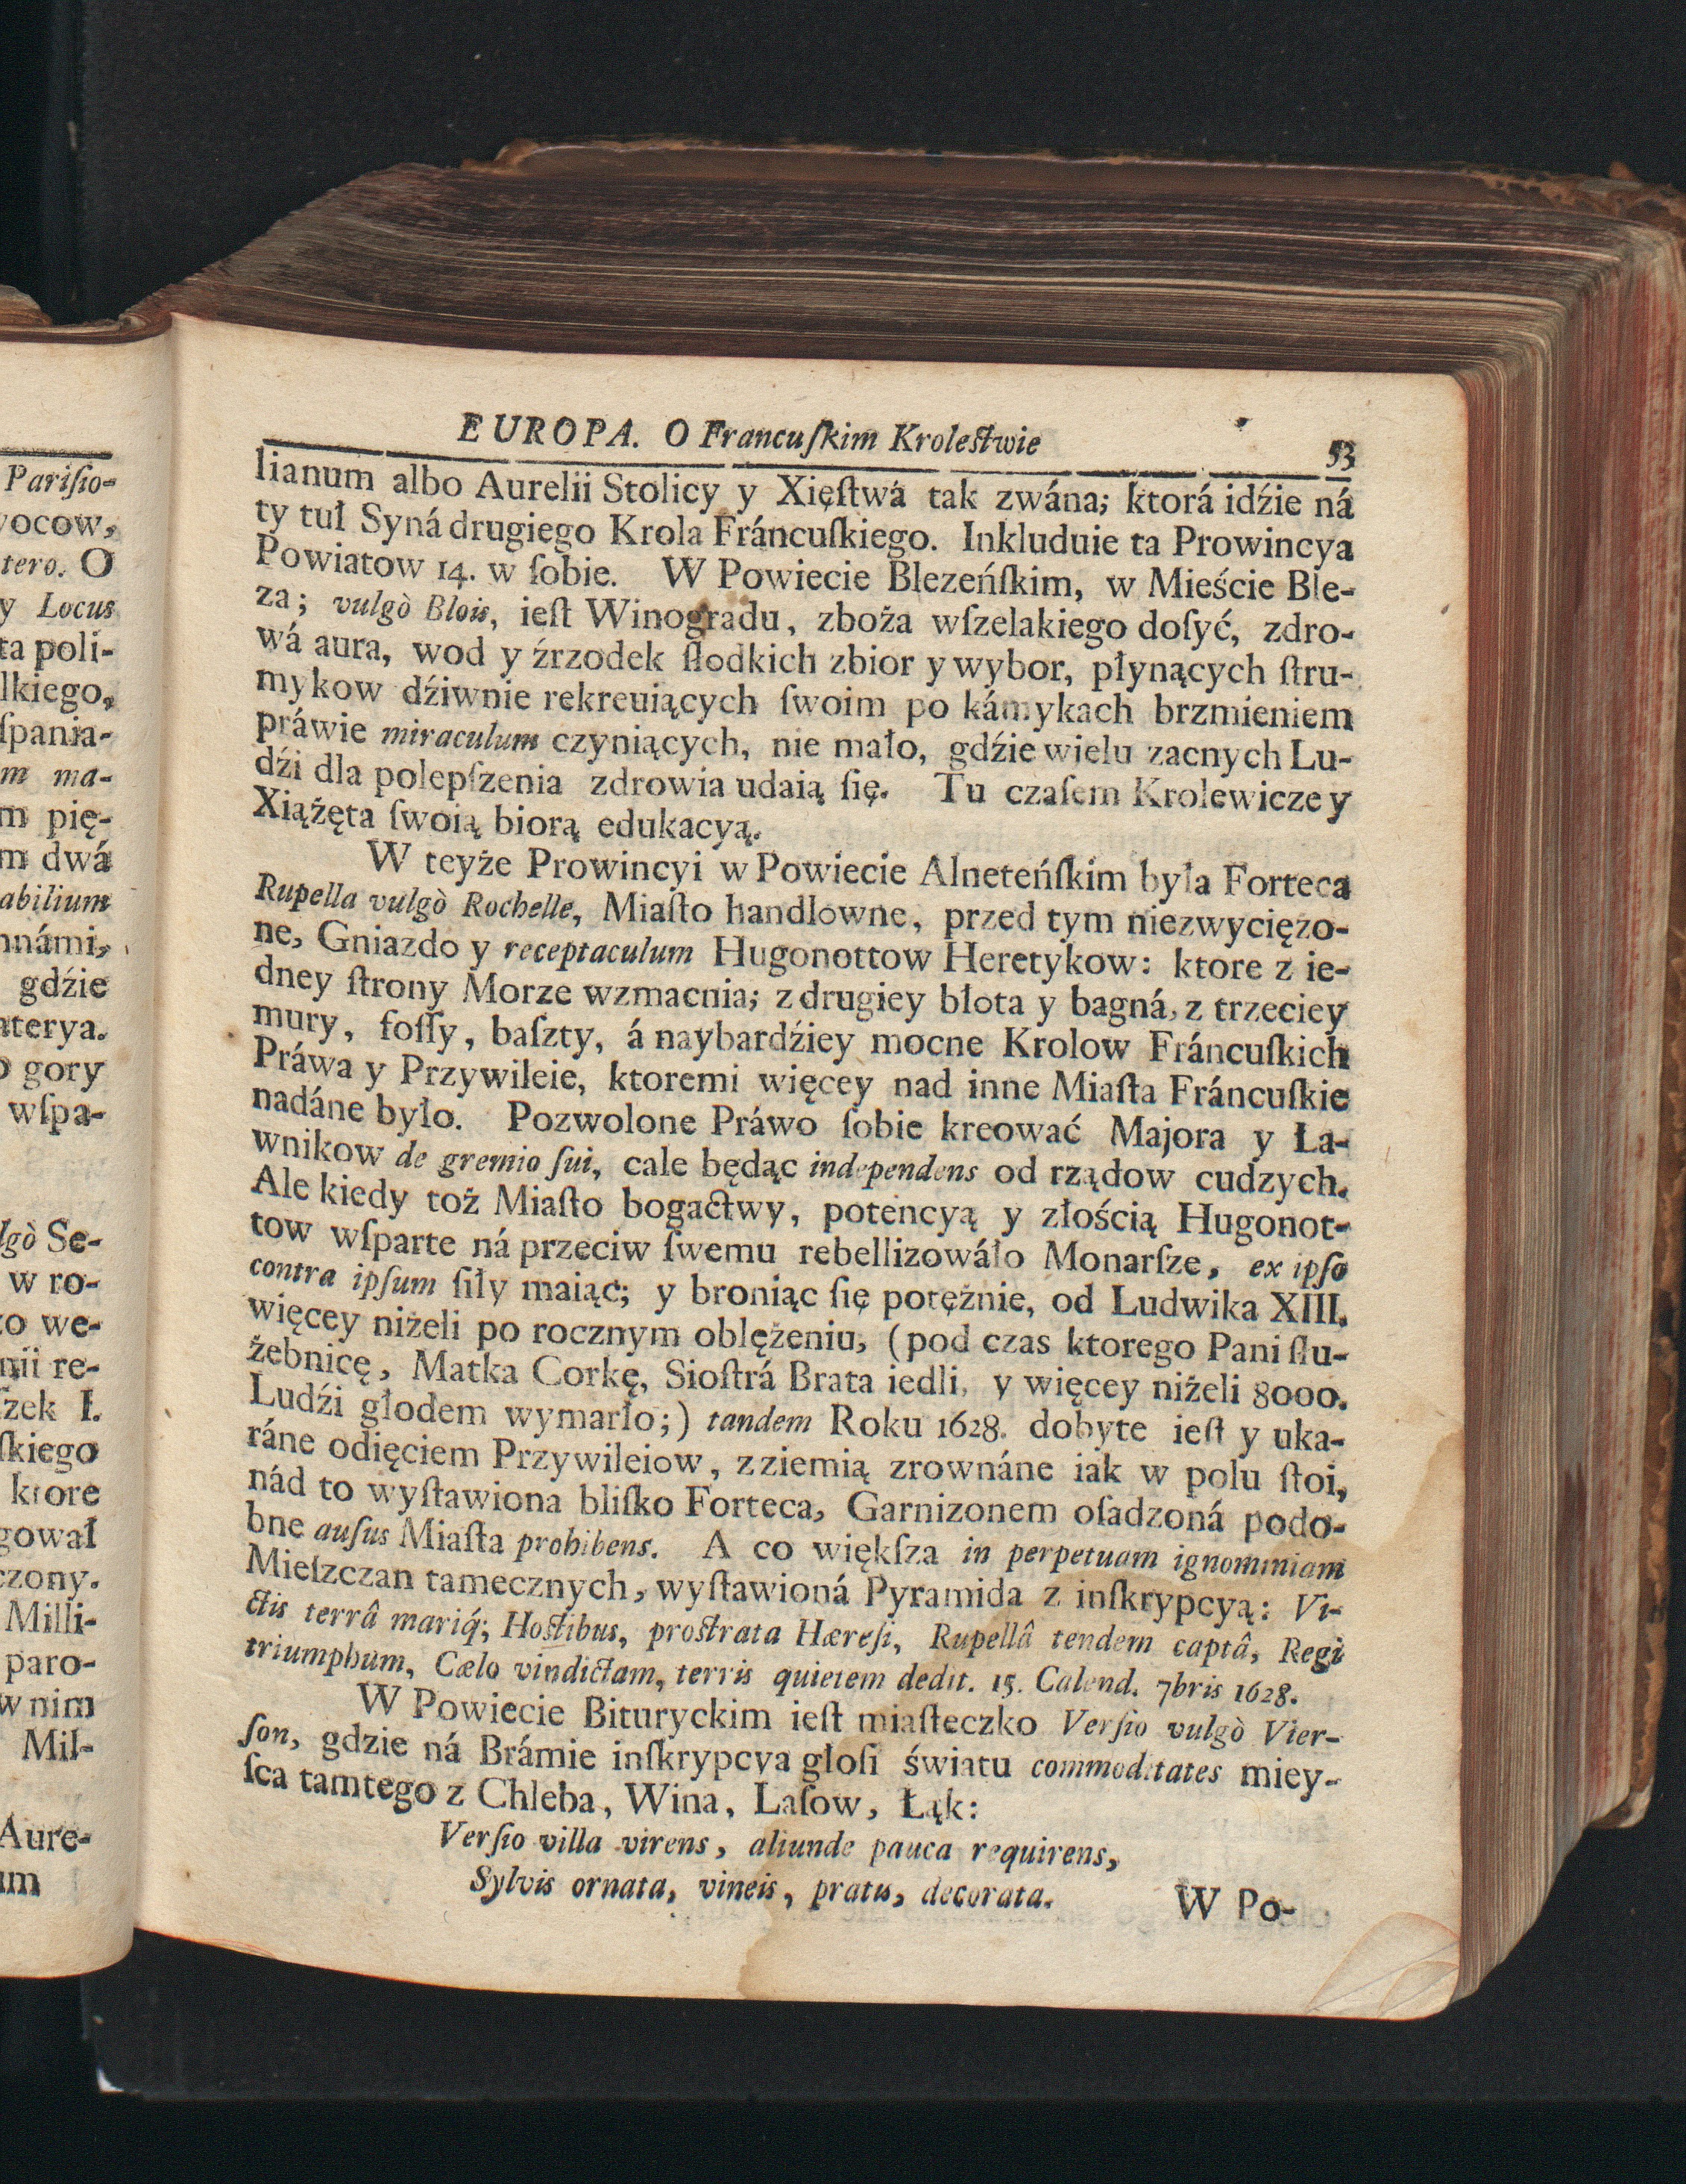 Pariſio-
vocow,
tero. O
y Locus
ta poli-
lkiego,
ſpania-
m ma-
m pię-
m dwá
abilium
nnámi,
gdźie
aterya.
o gory
wſpa-
lgò Se-
w ro-
zo we-
nii re-
zek I.
ſkiego
ktore
gował
czony.
Milli-
paro-
w nim
Mil-
Aure-
um
EUROPA. O Francuſkim Krolestwie 53
lianum albo Aurelii Stolicy y Xięſtwá tak zwána; ktorá idźie ná
ty tuł Syná drugiego Krola Fráncuſkiego. Inkluduie ta Prowincya
Powiatow 14. w ſobie. W Powiecie Blezeńſkim, w Mieście Ble-
za; vulgò Blois, ieſt Winogradu, zboża wſzelakiego doſyć, zdro-
wá aura, wod y źrzodek ſłodkich zbior y wybor, płynących ſtru-
mykow dźiwnie rekreuiących ſwoim po kámykach brzmieniem
práwie miraculum czyniących, nie mało, gdźie wielu zacnych Lu-
dźi dla polepſzenia zdrowia udaią ſię. Tu czaſem Krolewicze y
Xiążęta ſwoią biorą edukacyą.
W teyże Prowincyi w Powiecie Alneteńſkim była Forteca
Rupella vulgò Rochelle, Miaſto handlowne, przed tym niezwyciężo-
ne, Gniazdo y receptaculum Hugonottow Heretykow: ktore z ie-
dney ſtrony Morze wzmacnia; z drugiey błota y bagná, z trzeciey
mury, foſſy, baſzty, á naybardźiey mocne Krolow Fráncuſkich
Práwa y Przywileie, ktoremi więcey nad inne Miaſta Fráncuſkie
nadáne było. Pozwolone Práwo ſobie kreować Majora y Ła-
wnikow de gremio ſui, cale będąc independens od rządow cudzych.
Ale kiedy toż Miaſto bogactwy, potencyą y złością Hugonot-
tow wſparte ná przeciw ſwemu rebellizowáło Monarſze, ex ipſo
contra ipſum ſiły maiąc; y broniąc ſię potężnie, od Ludwika XIII.
więcey niżeli po rocznym oblężeniu, (pod czas ktorego Pani ſłu-
żebnicę, Matka Corkę, Sioſtrá Brata iedli, y więcey niżeli 8000.
Ludźi głodem wymarło;) tandem Roku 1628. dobyte ieſt y uka-
ráne odięciem Przywileiow, z ziemią zrownáne iak w polu ſtoi,
nád to wyſtawiona bliſko Forteca, Garnizonem oſadzoná podo-
bne auſus Miaſta prohibens. A co więkſza in perpetuam ignominiam
Mieſzczan tamecznych, wyſtawioná Pyramida z inſkrypcyą: Vi-
ctis terrâ mariq́; Hostibus, prostrata Hæreſi, Rupellâ tendem captâ, Regi
triumphum, Cælo vindictam, terris quietem dedit. 15. Calend. 7bris 1628.
W Powiecie Bituryckim ieſt miaſteczko Verſio vulgò Vier-
ſon, gdzie ná Brámie inſkrypcya głoſi światu commoditates miey-
ſca tamtego z Chleba, Wina, Laſow, Łąk:
Verſio villa virens, aliunde pauca requirens,
Sylvis ornata, vineis, pratis, decorata.
W Po-